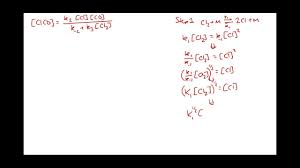 [ClCO] = k₂[Cl][CO] / k₋₂ + k₃[Cl₂]
Step 1 Cl₂ + M ⇌ 2Cl + M
k₁[Cl₂] = k₋₁[Cl]²
k₁/k₋₁ [Cl₂] = [Cl]²
(k₁/k₋₁ [Cl₂])^½ = [Cl]
(K₁[Cl₂])^½ = [Cl]
K₁^½ [